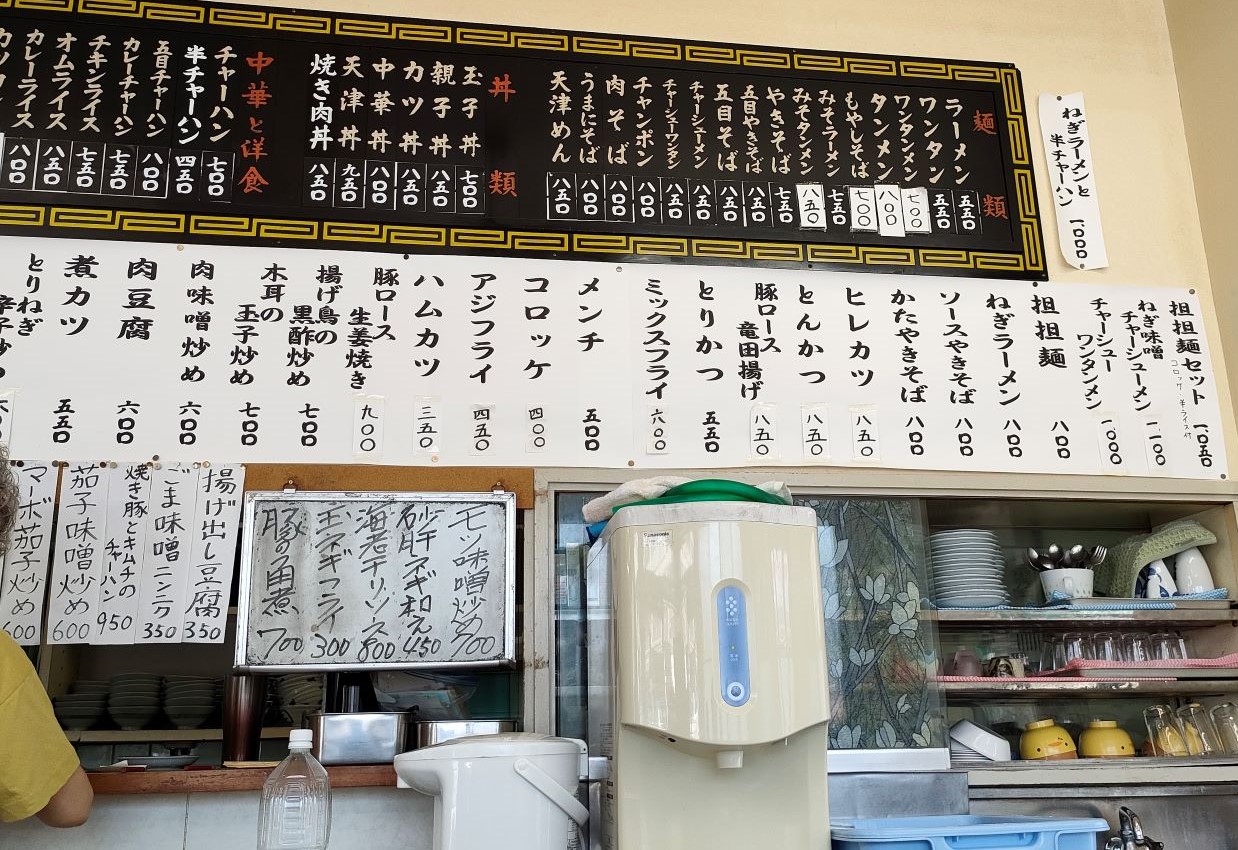 ねぎラーメンと
半チャーハン 一〇〇〇
麺類
ラーメン 五五〇
ワンタン 五五〇
ワンタンメン 七〇〇
タンメン 八〇〇
もやしそば 七〇〇
みそラーメン 七五〇
みそタンメン 八五〇
やきそば 七五〇
五目やきそば 八五〇
五目そば 八五〇
チャーシューメン 八五〇
チャーシューワンタン 八五〇
チャンポン 八〇〇
肉そば 八〇〇
うまにそば 八〇〇
天津めん 八五〇
丼類
玉子丼 七〇〇
親子丼 八五〇
カツ丼 八五〇
中華丼 八〇〇
天津丼 九五〇
焼き肉丼 八五〇
中華と洋食
チャーハン 七〇〇
半チャーハン 四五〇
五目チャーハン 八〇〇
カレーチャーハン 七五〇
チキンライス 七五〇
オムライス 八五〇
カレーライス 八〇〇
担担麺セット 一〇五〇
コロッケ 半ライス付
ねぎ味噌
チャーシューメン 一一〇〇
チャーシュー
ワンタンメン 一〇〇〇
担担麺 八〇〇
ねぎラーメン 八〇〇
ソースやきそば 八〇〇
かたやきそば 八〇〇
ヒレカツ 八五〇
とんかつ 八五〇
豚ロース
竜田揚げ 八五〇
とりかつ 五五〇
ミックスフライ 六〇〇
メンチ 五〇〇
コロッケ 四〇〇
アジフライ 四五〇
ハムカツ 三五〇
豚ロース
生姜焼き 九〇〇
揚げ鳥の
黒酢炒め 七〇〇
木耳の
玉子炒め 七〇〇
肉味噌炒め 六〇〇
肉豆腐 六〇〇
煮カツ 五五〇
とりねぎ
モツ味噌炒め 700
砂肝ネギ和え 450
海老チリソース 800
玉ネギフライ 300
豚の角煮 700
揚げ出し豆腐 350
ごま味噌ニンニク 350
焼き豚とキムチの
チャーハン 950
茄子味噌炒め 600
マーボ茄子炒め 600
Panasonic